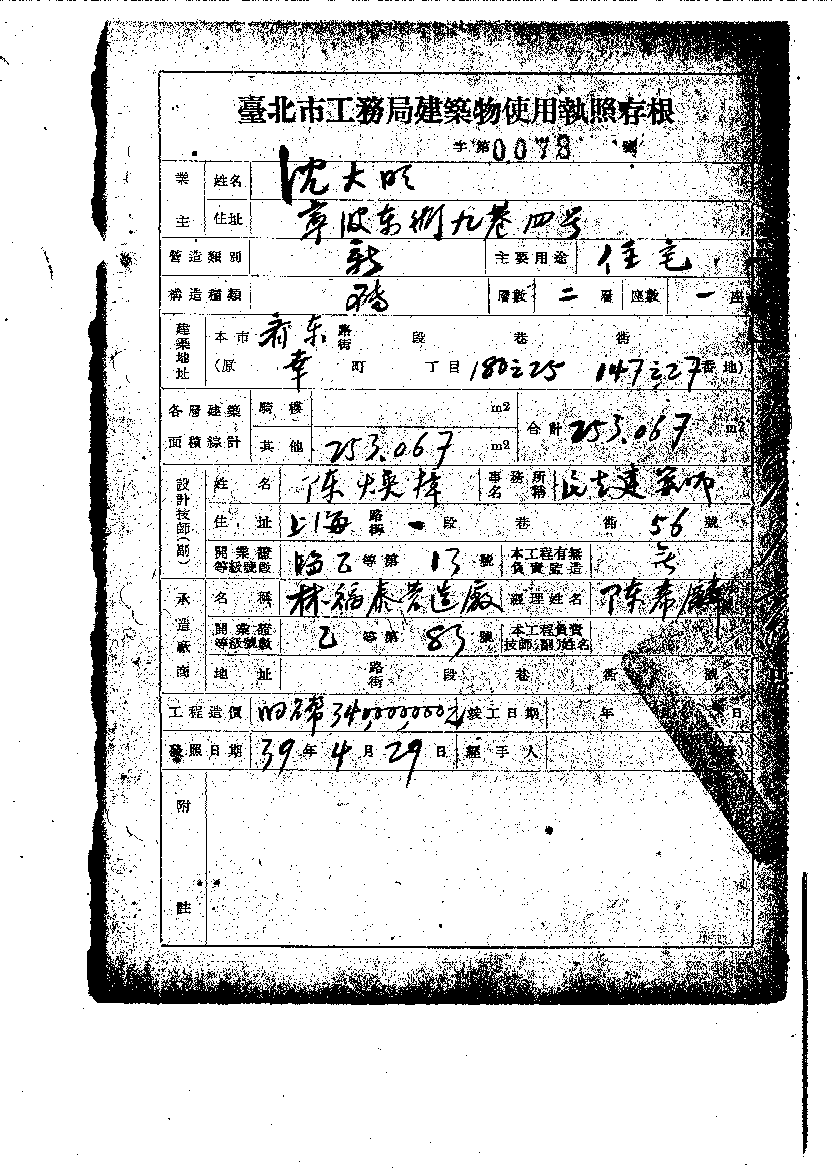 臺北市工務局建築物使用執照存根
字第0078號
業主 姓名 沈大
住址 寧波東街九巷四号
營造類別 新 主要用途 住宅
構造種類 磚 層數 二層 座數 一座
建築地址 本市 齊東 路街 段 巷 衖
(原 幸 町 丁目 180之25 147之27番地)
各層建築面積綜計 騎樓 m2 合計 253.067 m2
其他 253.067 m2
設計技師(副) 姓名 陳煥 事務所名稱
住址 上海 路街 一段 巷 衖 56號
開業證等級號數 臨乙等第 13 號 本工程有無負責監造 無
承造廠商 名稱 林福泰營造廠 經理姓名 陳希麟
開業證等級號數 乙等第 83 號 本工程負責技師(副)姓名
地址 路街 段 巷 衖 號
工程造價 旧台幣340,000,000元 竣工日期 年 日
發照日期 39年4月29日 經手人
附註